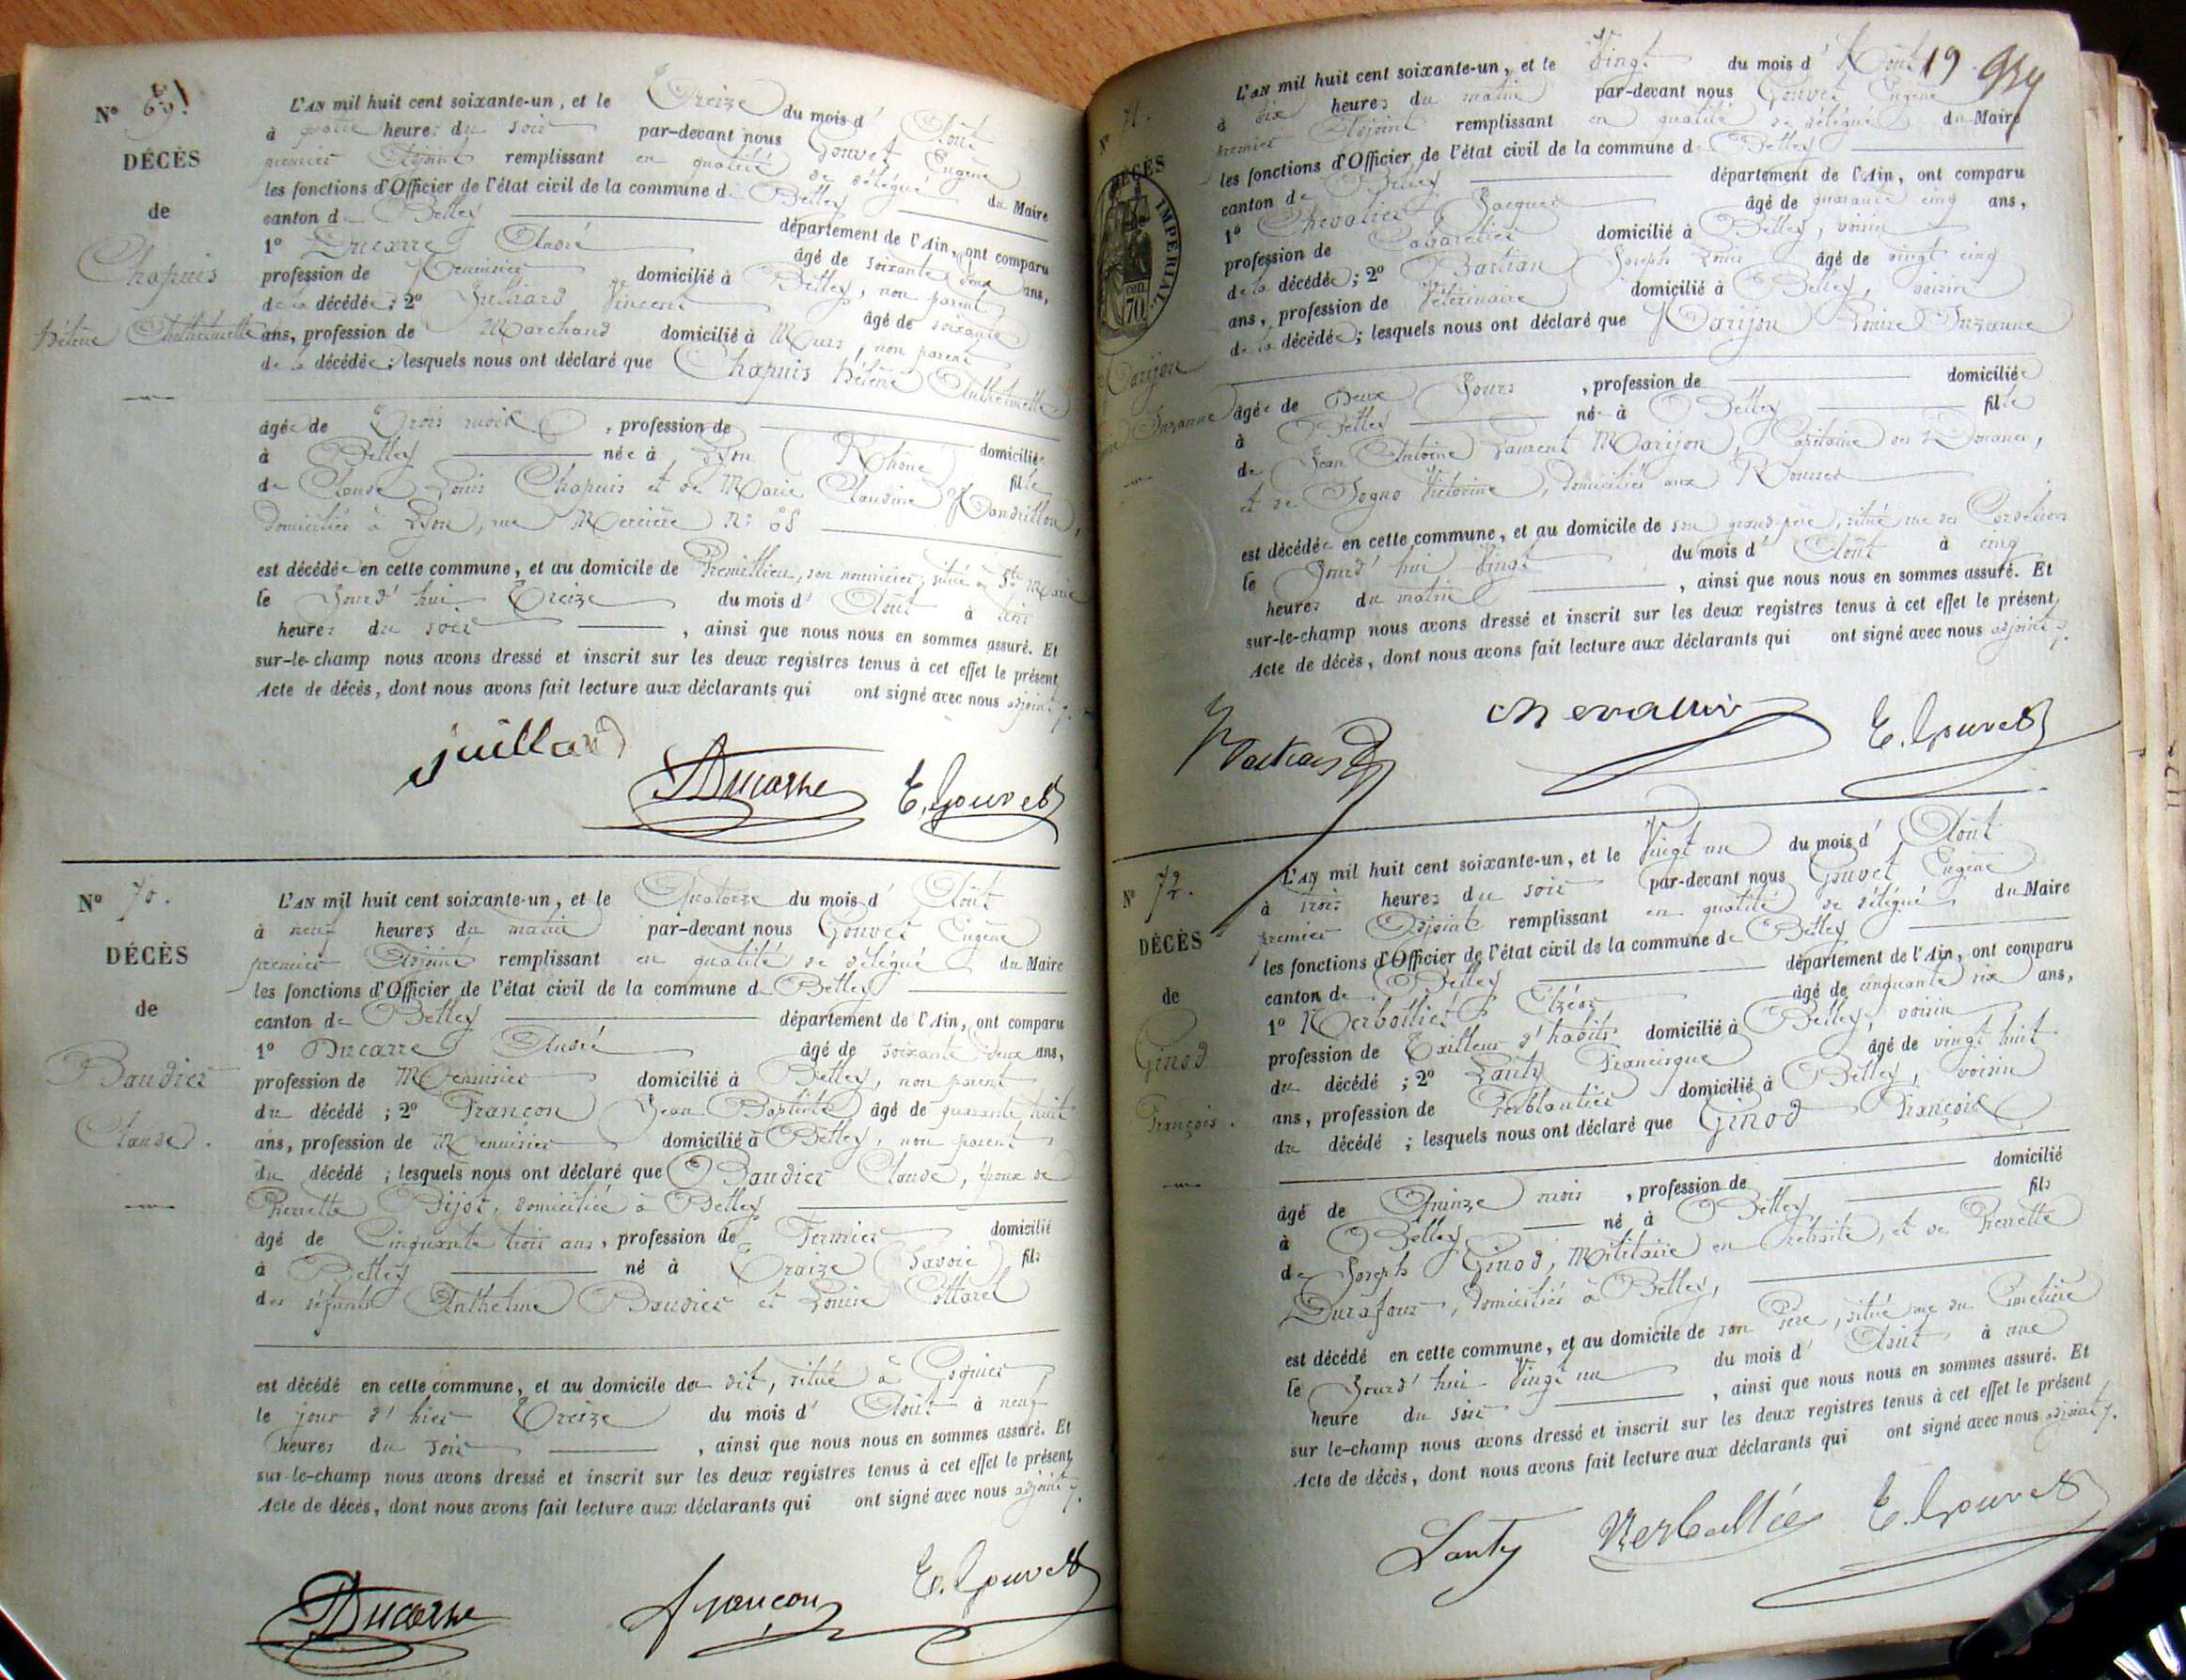 Nº 69
DÉCÈS
de
Chapuis
Hélène Anthelmette
L'AN mil huit cent soixante-un, et le Treize du mois d' Août
à quatre heures du soir par-devant nous Gouvet Eugène
premier Adjoint remplissant en qualité de délégué du Maire
les fonctions d'Officier de l'état civil de la commune de Belley
canton de Belley département de l'Ain, ont comparu
1º Ducarre André âgé de soixante deux ans,
profession de Menuisier domicilié à Belley, non parent
de la décédée; 2º Juilliard Vincent âgé de soixante
ans, profession de Marchand domicilié à Murs, non parent
de la décédée; lesquels nous ont déclaré que Chapuis Hélène Anthelmette
âgée de Trois mois, profession de domiciliée
à Belley née à Lyon (Rhône) fille
de Claude Louis Chapuis et de Marie Claudine
domiciliés à Lyon, rue Mercière Nº 68
est décédée en cette commune, et au domicile de Premillieu, son nourricier, situé à Ste Marie
le Jourd'hui Treize du mois d' Août à
heures du soir, ainsi que nous nous en sommes assuré. Et
sur-le-champ nous avons dressé et inscrit sur les deux registres tenus à cet effet le présent
Acte de décès, dont nous avons fait lecture aux déclarants qui ont signé avec nous adjoint
juillard
Ducarre E. Gouvet
Nº 70.
DÉCÈS
de
Baudier
Claude.
L'AN mil huit cent soixante-un, et le Quatorze du mois d' Août
à neuf heures du matin par-devant nous Gouvet Eugène
premier Adjoint remplissant en qualité de délégué du Maire
les fonctions d'Officier de l'état civil de la commune de Belley
canton de Belley département de l'Ain, ont comparu
1º Ducarre André âgé de soixante deux ans,
profession de Menuisier domicilié à Belley, non parent
du décédé; 2º Françon Jean Baptiste âgé de quarante huit
ans, profession de Menuisier domicilié à Belley, non parent
du décédé; lesquels nous ont déclaré que Baudier Claude, époux de
Pierrette Bijot, domiciliée à Belley
âgé de Cinquante trois ans, profession de Fermier domicilié
à Belley né à Traize (Savoie) fils
des défunts Anthelme Baudier et Louise Cottarel
est décédé en cette commune, et au domicile du dit, situé à
le jour d'hier Treize du mois d' Août à neuf
heures du soir, ainsi que nous nous en sommes assuré. Et
sur-le-champ nous avons dressé et inscrit sur les deux registres tenus à cet effet le présent
Acte de décès, dont nous avons fait lecture aux déclarants qui ont signé avec nous adjoint
Ducarre françon E. Gouvet
19
Nº 71.
DÉCÈS
IMPÉRIAL
cen. 70
Marijon
Suzanne
L'AN mil huit cent soixante-un, et le Vingt du mois d' Août
à dix heures du matin par-devant nous Gouvet Eugène
premier Adjoint remplissant en qualité de délégué du Maire
les fonctions d'Officier de l'état civil de la commune de Belley
canton de Belley département de l'Ain, ont comparu
1º Chevalier Jacques âgé de quarante cinq ans,
profession de Cabaretier domicilié à Belley, voisin
de la décédée; 2º Bastian Joseph Louis âgé de vingt cinq
ans, profession de Vétérinaire domicilié à Belley, voisin
de la décédée; lesquels nous ont déclaré que Marijon Louise Suzanne
âgée de Deux Jours, profession de domiciliée
à Belley née à Belley fille
de Jean Antoine Laurent Marijon, Capitaine des Douanes,
et de Jogno Victorine, domiciliés aux Rousses
est décédée en cette commune, et au domicile de son grand-père, situé rue des Cordeliers
le Jourd'hui Vingt du mois d' Août à cinq
heures du matin, ainsi que nous nous en sommes assuré. Et
sur-le-champ nous avons dressé et inscrit sur les deux registres tenus à cet effet le présent
Acte de décès, dont nous avons fait lecture aux déclarants qui ont signé avec nous adjoint
Bastian chevallier E. Gouvet
Nº 72.
DÉCÈS
de
Ginod
François.
L'AN mil huit cent soixante-un, et le Vingt un du mois d' Août
à trois heures du soir par-devant nous Gouvet Eugène
premier Adjoint remplissant en qualité de délégué du Maire
les fonctions d'Officier de l'état civil de la commune de Belley
canton de Belley département de l'Ain, ont comparu
1º Elzéar âgé de cinquante six ans,
profession de Tailleur d'habits domicilié à Belley, voisin
du décédé; 2º Lanty Francisque âgé de vingt huit
ans, profession de Ferblantier domicilié à Belley, voisin
du décédé; lesquels nous ont déclaré que Ginod François
âgé de Quinze mois, profession de domicilié
à Belley né à Belley fils
de Joseph Ginod, Militaire en retraite, et de Pierrette
Durafour, domiciliés à Belley,
est décédé en cette commune, et au domicile de son Père, situé rue du Cimetière
le Jourd'hui Vingt un du mois d' Août à une
heure du soir, ainsi que nous nous en sommes assuré. Et
sur le-champ nous avons dressé et inscrit sur les deux registres tenus à cet effet le présent
Acte de décès, dont nous avons fait lecture aux déclarants qui ont signé avec nous adjoint
Lanty E. Gouvet